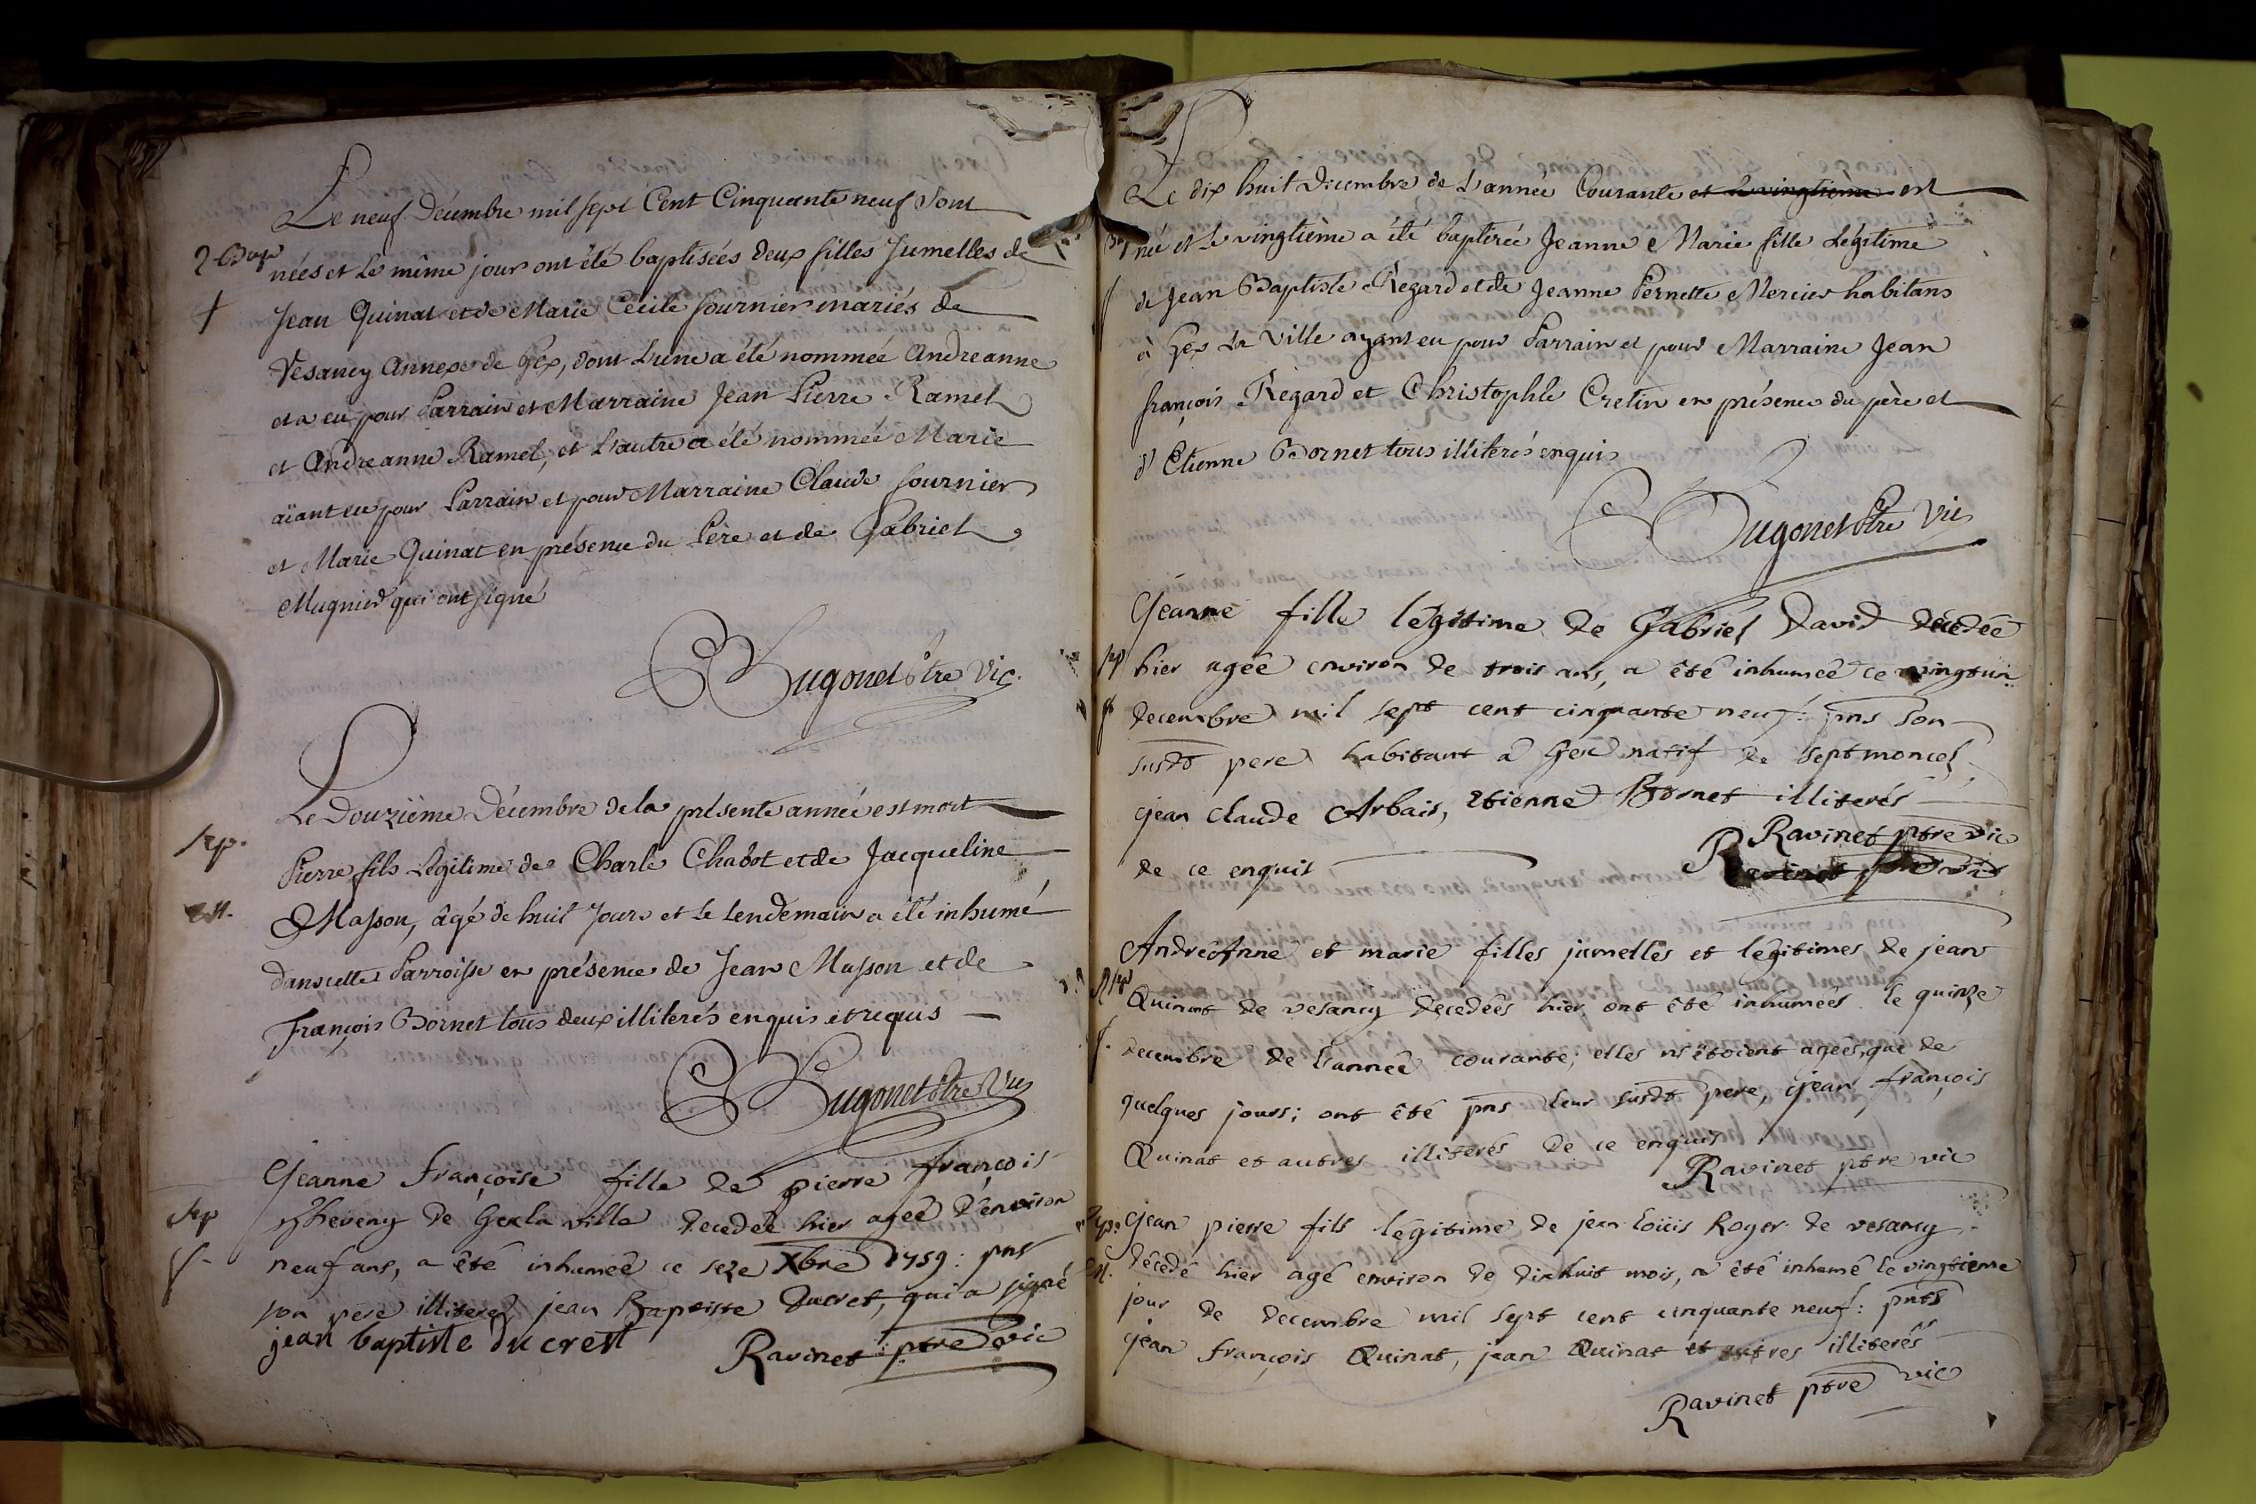 Le neuf Décembre mil sept Cent Cinquante neuf sont
2 Bap nées et le même jour ont été baptisées deux filles Jumelles de
Jean Quinat et de Marie Cecile fournier mariés de
Vesancy Annexe de Gex, dont l'une a été nommée Andreanne
et a eu pour Parrain et Marraine Jean Pierre Ramel
et Andreanne Ramel, et l'autre a été nommée Marie
aïant eu pour Parrain et pour Marraine Claude fournier
et Marie Quinat en présence du Père et de Gabriel
Mugnier qui ont signé
Bugonet Ptre Vic.
Le Douzième Décembre de la présente année est mort
Sep. Pierre fils Legitime de Charle Chabot et de Jacqueline
Masson, âgé de huit Jours et le lendemain a été inhumé
dans cette Parroisse en présence de Jean Masson et de
François Bornet tous deux illiterés enquis et requis
Bugonet Ptre Vic
Jeanne françoise fille de pierre françois
Sep de Gex la ville decedée hier agée d'environ
f. neuf ans, a été inhumée ce seze Xbre 1759: pns
son pere illiteré jean Baptiste Ducret, qui a signé
jean baptiste du crest
Ravinet ptre vic
Le dix huit Decembre de L'année Courante et le vingtieme est
née et le vingtième a été baptisée Jeanne Marie fille Légitime
de Jean Baptiste Regard et de Jeanne Pernette Mercier habitans
à Gex La Ville ayant eu pour Parrain et pour Marraine Jean
françois Regard et Christophle Cretin en présence du père et
d'Etienne Bornet tous illiterés enquis
Bugonet Ptre Vic
Jeanne fille legitime de Gabriel David décedée
sep hier agée environ de trois ans, a été inhumée ce vingt un
f decembre mil sept cent cinquante neuf: pns son
susdt pere habitant a Gex natif de septmoncel
jean claude Arbais, etienne Bornet illiterés
de ce enquis
Ravinet ptre vic
Ravinet ptre vic
AndréAnne et marie filles jumelles et legitimes de jean
2 sep Quinat de vesancy decedées hier ont été inhumées le quinze
f. decembre de l'année courante; elles n'étoient agées que de
quelques jours; ont été pns leur susdt pere, jean françois
Quinat et autres illiterés de ce enquis
Ravinet ptre vic
Sep. jean pierre fils légitime de jean loüis Roger de vesancy
M. décedé hier agé environ de dixhuit mois, a été inhumé le vingtieme
jour de decembre mil sept cent cinquante neuf: pnts
jean françois Quinat, jean Quinat et autres illiterés
Ravinet ptre vic